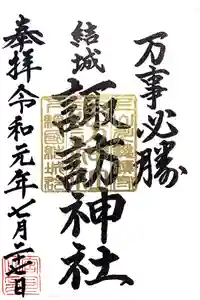 万事必勝
結城
諏訪神社
奉拝令和元年七月二十七日